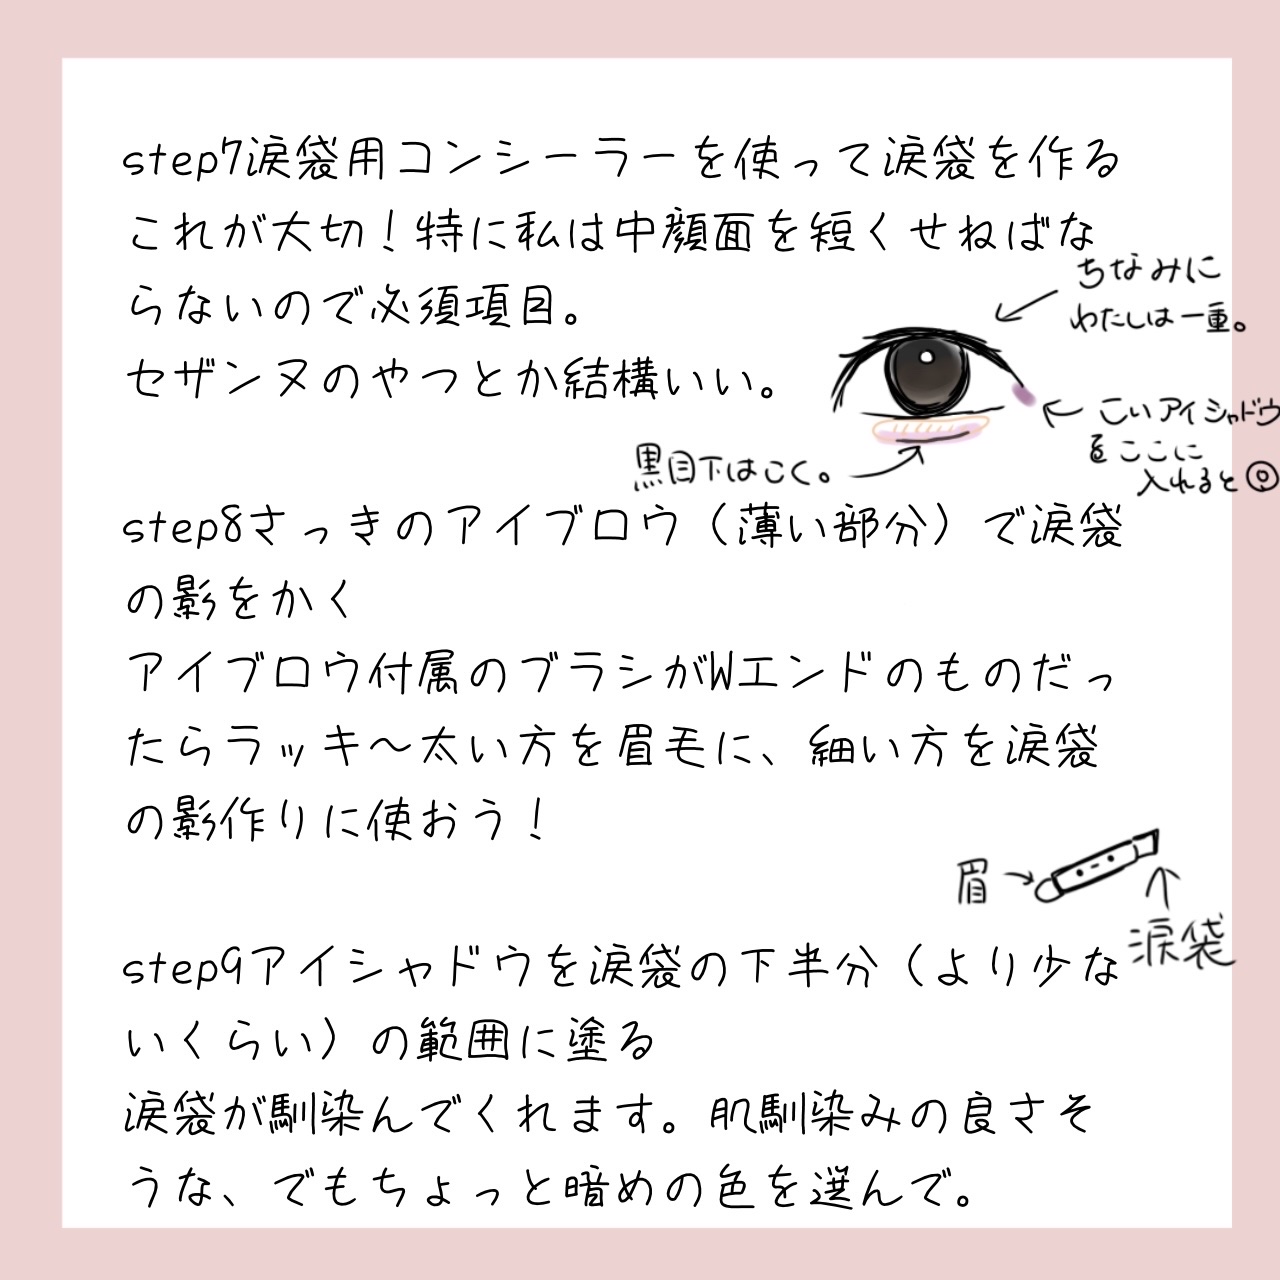 step7涙袋用コンシーラーを使って涙袋を作る
これが大切！特に私は中顔面を短くせねばな
らないので必須項目。
セザンヌのやつとか結構いい。
ちなみに
わたしは一重。
こいアイシャドウ
をここに
入れると◎
黒目下はこく。
step8さっきのアイブロウ（薄い部分）で涙袋
の影をかく
アイブロウ付属のブラシがWエンドのものだっ
たらラッキ〜太い方を眉毛に、細い方を涙袋
の影作りに使おう！
眉
涙袋
step9アイシャドウを涙袋の下半分（より少な
いくらい）の範囲に塗る
涙袋が馴染んでくれます。肌馴染みの良さそ
うな、でもちょっと暗めの色を選んで。